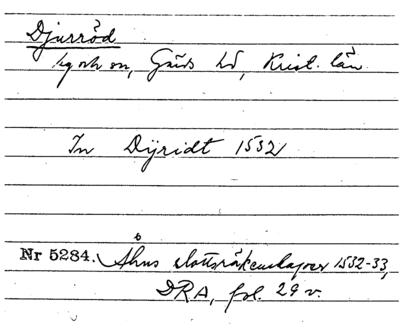 Djurröd
sg och sn, Gärds hd, Krist. län
In Dÿridt 1532
Nr 5284. Åhus slottsräkenskaper 1532-33,
DRA, fol. 29 v.